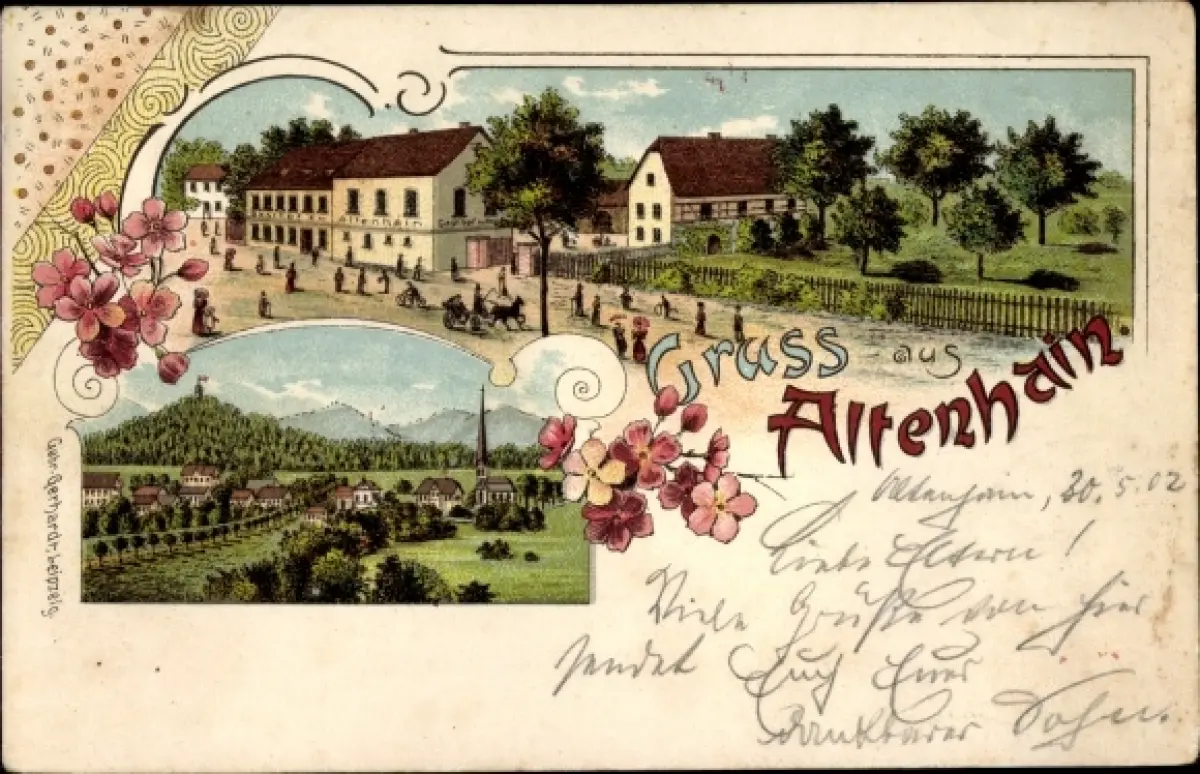 Gasthof Altenhain
Gruss aus
Altenhain
Gebr. Gerhardt Leipzig.
Altenhain, 20.5.02
Liebe Eltern!
Viele Grüße von hier
sendet Euch Euer
dankbarer Sohn.